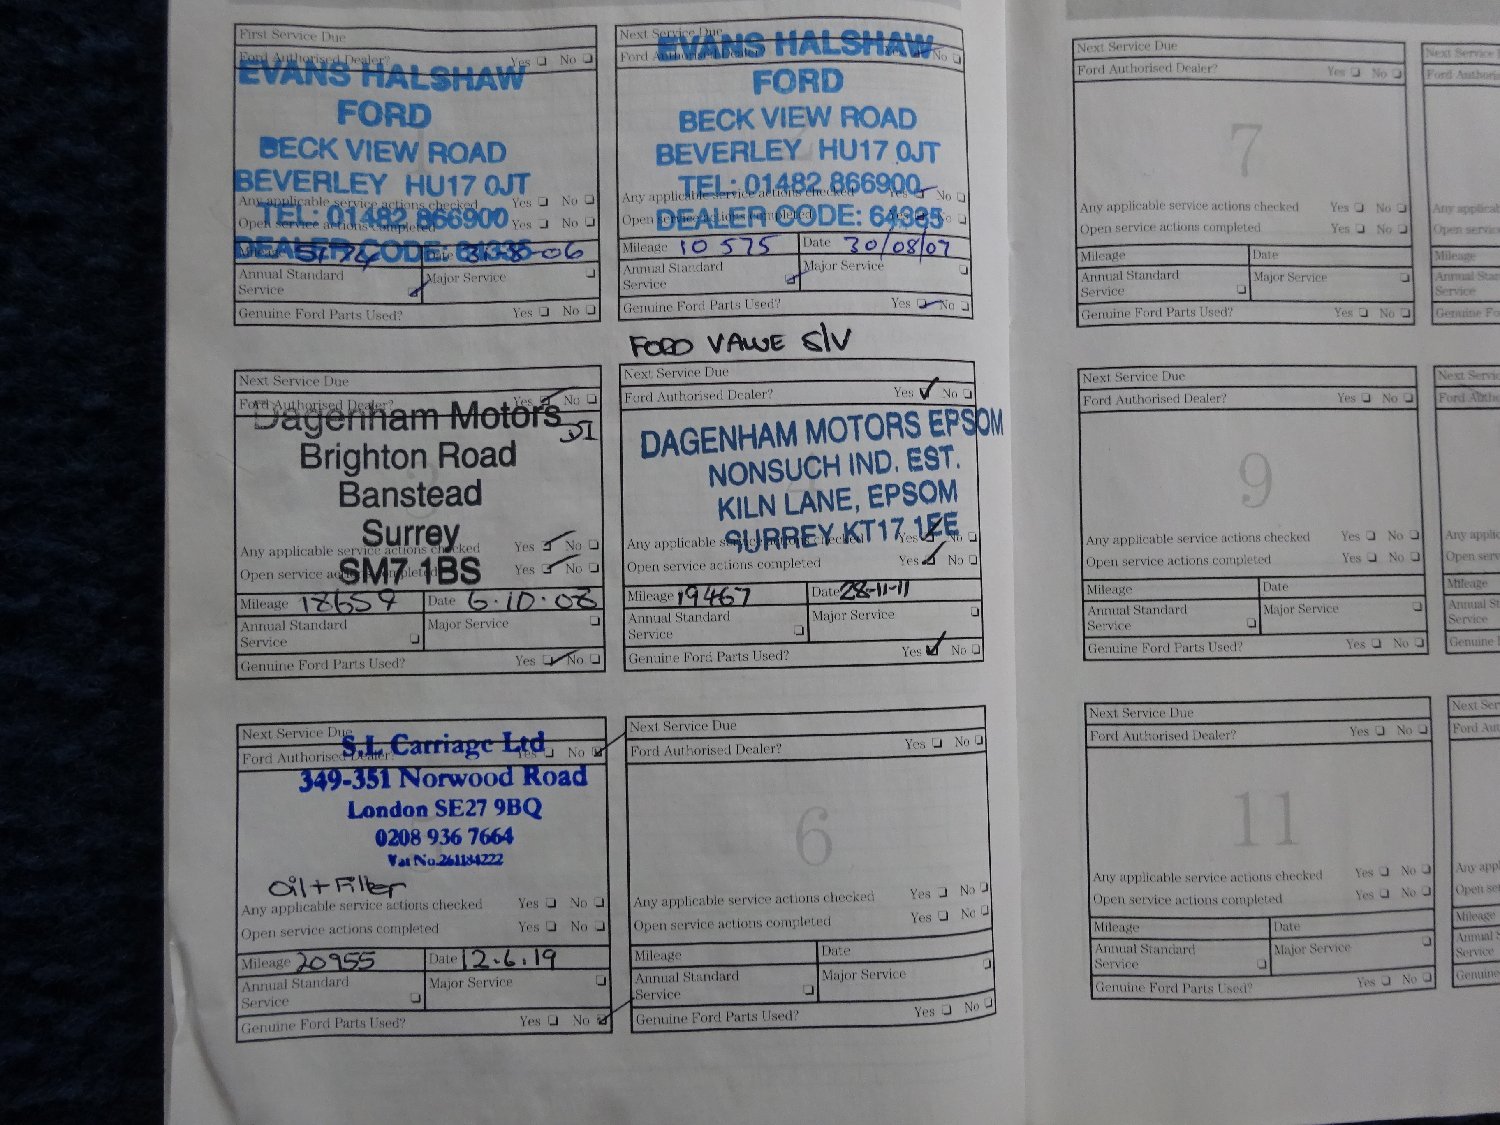 First Service Due
Ford Authorised Dealer? Yes No
EVANS HALSHAW
FORD
BECK VIEW ROAD
BEVERLEY HU17 0JT
Any applicable service actions checked Yes No
TEL: 01482 866900
Open service actions completed Yes No
DEALER CODE: 64335
Date 31-8-06
Annual Standard
Service
Major Service
Genuine Ford Parts Used? Yes No
Next Service Due
EVANS HALSHAW
Ford Authorised Dealer? Yes No
FORD
BECK VIEW ROAD
BEVERLEY HU17 0JT
TEL: 01482 866900
Any applicable service actions checked Yes No
DEALER CODE: 64335
Open service actions completed Yes No
Mileage 10575 Date 30/08/07
Annual Standard
Service
Major Service
Genuine Ford Parts Used? Yes No
FORD VALUE S/V
Next Service Due
Ford Authorised Dealer? Yes No
Dagenham Motors
Brighton Road
Banstead
Surrey
Any applicable service actions checked Yes No
SM7 1BS
Open service actions completed Yes No
Mileage 18659 Date 6.10.08
Annual Standard
Service
Major Service
Genuine Ford Parts Used? Yes No
Next Service Due
Ford Authorised Dealer? Yes No
DAGENHAM MOTORS EPSOM
NONSUCH IND. EST.
KILN LANE, EPSOM
SURREY KT17 1EE
Any applicable service actions checked Yes No
Open service actions completed Yes No
Mileage 19467 Date 28-11-11
Annual Standard
Service
Major Service
Genuine Ford Parts Used? Yes No
Next Service Due
S.L Carriage Ltd
Ford Authorised Dealer? Yes No
349-351 Norwood Road
London SE27 9BQ
0208 936 7664
Vat No.261184222
Oil + Filter
Any applicable service actions checked Yes No
Open service actions completed Yes No
Mileage 20955 Date 12.6.19
Annual Standard
Service
Major Service
Genuine Ford Parts Used? Yes No
Next Service Due
Ford Authorised Dealer? Yes No
6
Any applicable service actions checked Yes No
Open service actions completed Yes No
Mileage Date
Annual Standard
Service
Major Service
Genuine Ford Parts Used? Yes No
Next Service Due
Ford Authorised Dealer? Yes No
7
Any applicable service actions checked Yes No
Open service actions completed Yes No
Mileage Date
Annual Standard
Service
Major Service
Genuine Ford Parts Used? Yes No
Next Service Due
Ford Authorised Dealer? Yes No
9
Any applicable service actions checked Yes No
Open service actions completed Yes No
Mileage Date
Annual Standard
Service
Major Service
Genuine Ford Parts Used? Yes No
Next Service Due
Ford Authorised Dealer? Yes No
11
Any applicable service actions checked Yes No
Open service actions completed Yes No
Mileage Date
Annual Standard
Service
Major Service
Genuine Ford Parts Used? Yes No